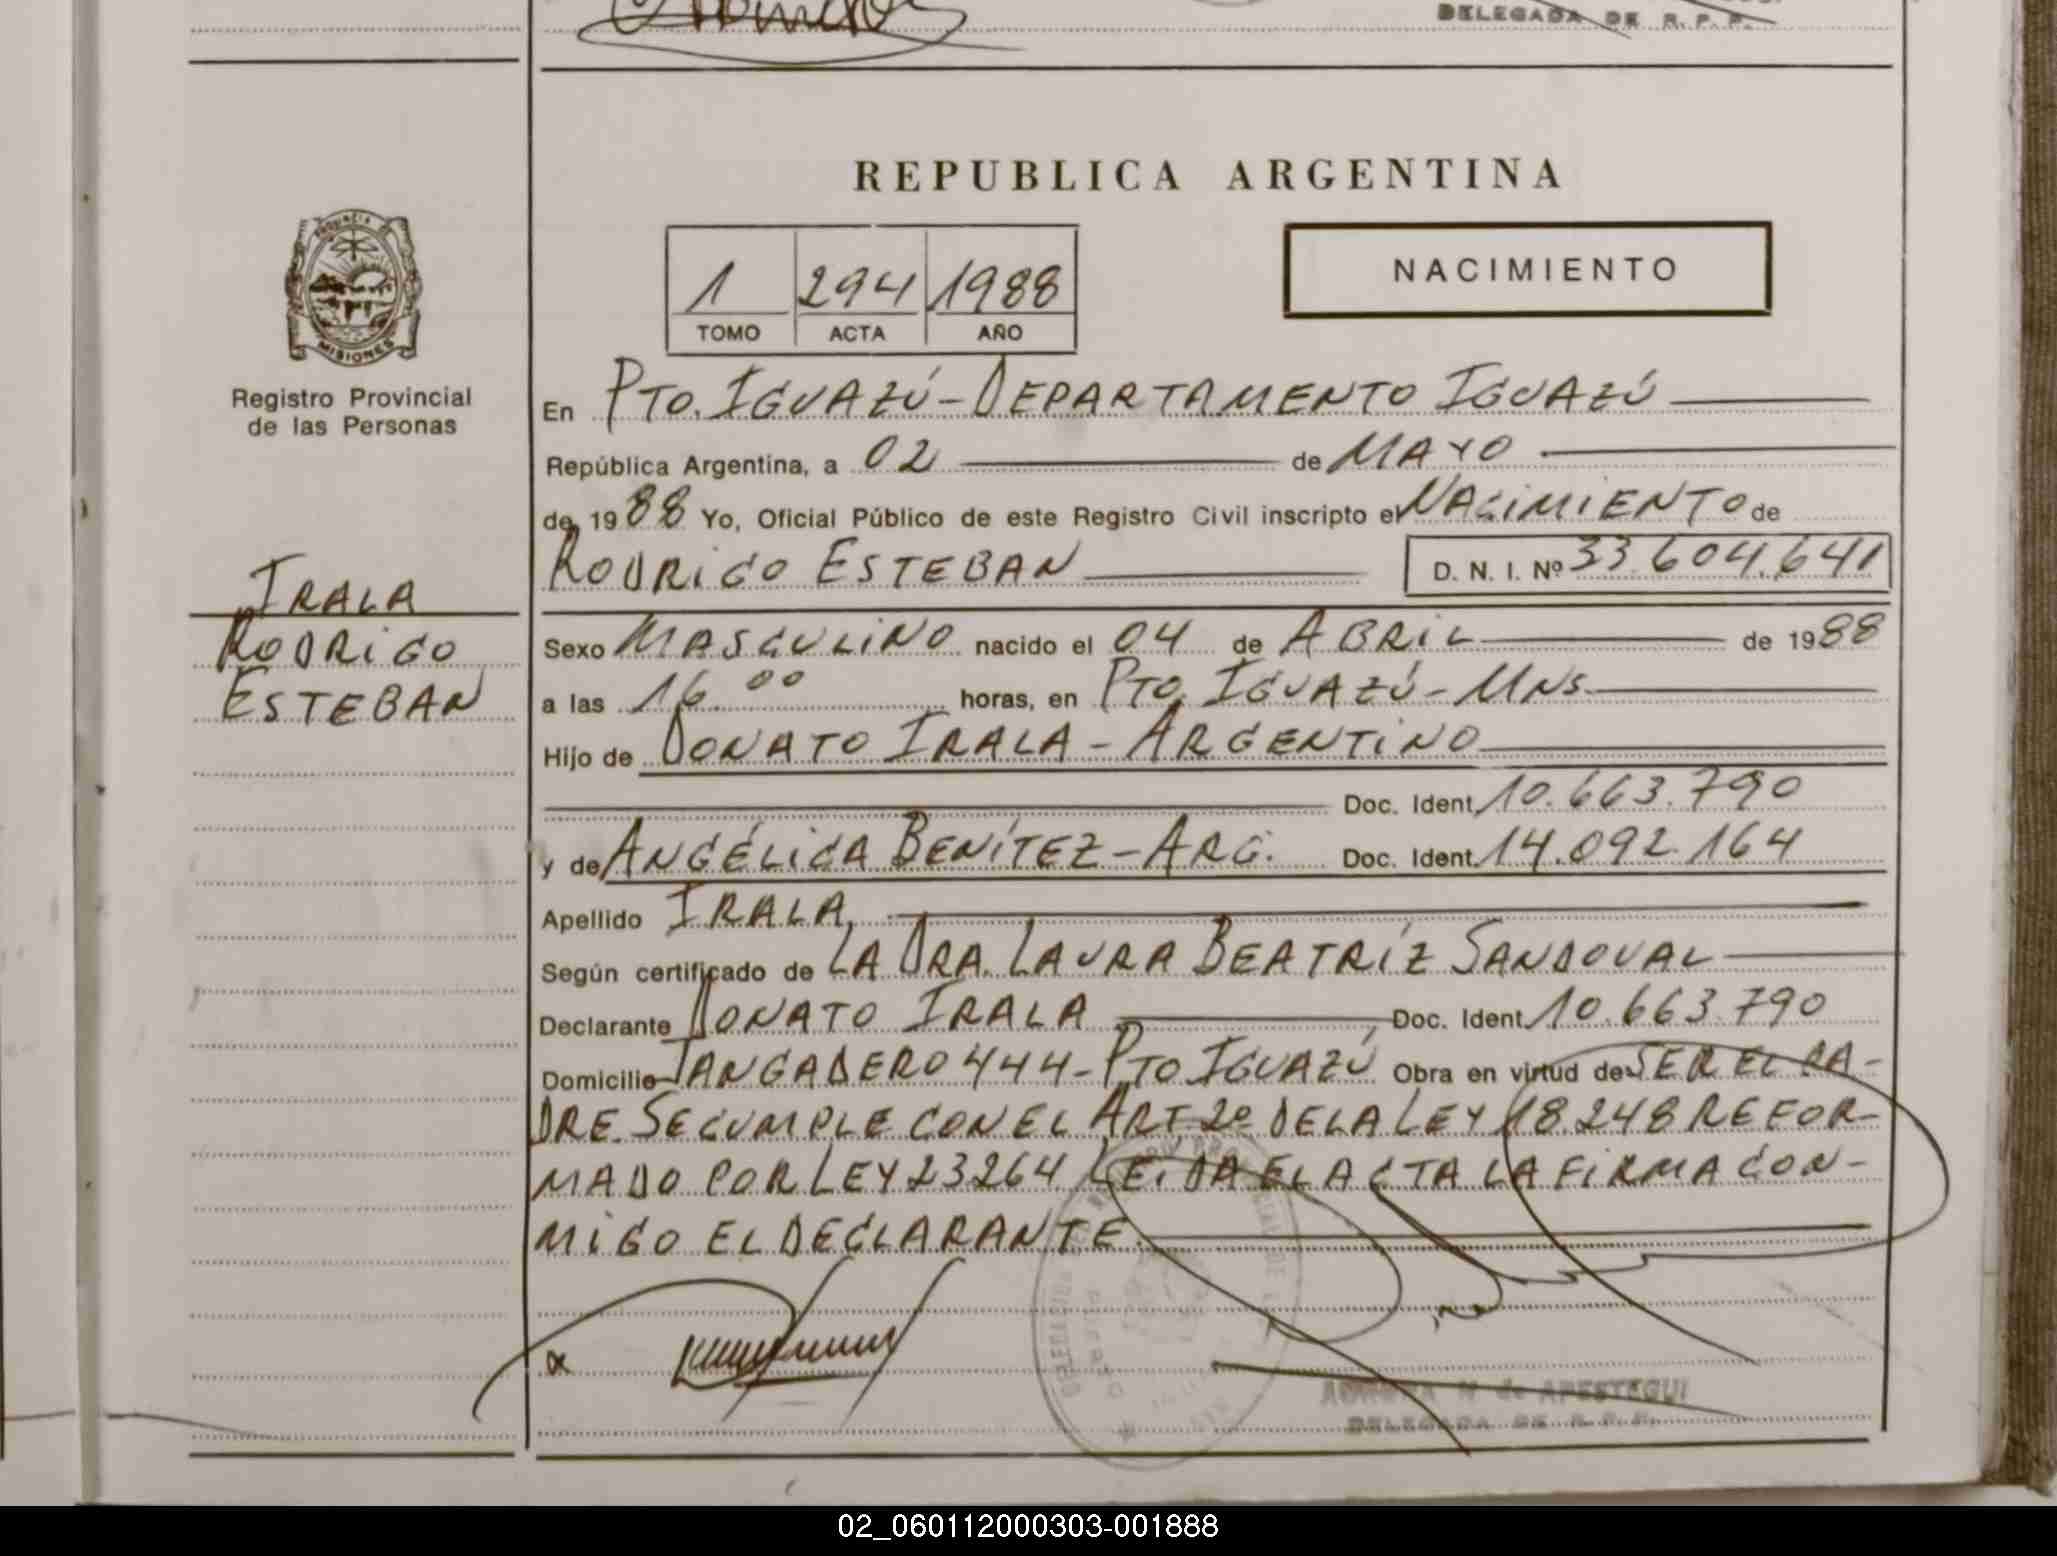 DELEGADA DE R.P.P.
REPUBLICA ARGENTINA
PROVINCIA DE
MISIONES
Registro Provincial
de las Personas
1 294 1988
TOMO ACTA AÑO
NACIMIENTO
En PTO. IGUAZÚ - DEPARTAMENTO IGUAZÚ
República Argentina, a 02 de MAYO
de 1988 Yo, Oficial Público de este Registro Civil inscripto el NACIMIENTO de
RODRIGO ESTEBAN D. N. I. Nº 33.604.641
IRALA
RODRIGO
ESTEBAN
Sexo MASCULINO nacido el 04 de ABRIL de 1988
a las 16.00 horas, en PTO. IGUAZÚ - MNS.
Hijo de DONATO IRALA - ARGENTINO
Doc. Ident. 10.663.790
y de ANGÉLICA BENÍTEZ - ARG. Doc. Ident. 14.092.164
Apellido IRALA
Según certificado de LA DRA. LAURA BEATRÍZ SANDOVAL
Declarante DONATO IRALA Doc. Ident. 10.663.790
Domicilio TANGADERO 444 - PTO IGUAZÚ Obra en virtud de SER EL PA-
DRE. SE CUMPLE CON EL ART 2º DE LA LEY 18.248 REFOR-
MADO POR LEY 23264 LEIDA EL ACTA LA FIRMA CON-
MIGO EL DECLARANTE.
M de APESTEGUI
DELEGADA DE R.P.P.
02_060112000303-001888